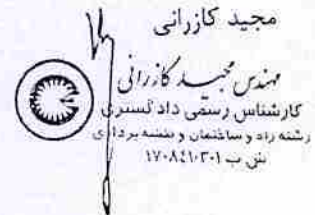 مجید کازرانی
مهندس مجید کازرانی
کارشناس رسمی دادگستری
رشته راه و ساختمان و نقشه برداری
ش ب ۱۷۰۸٤۱۰۳۰۱